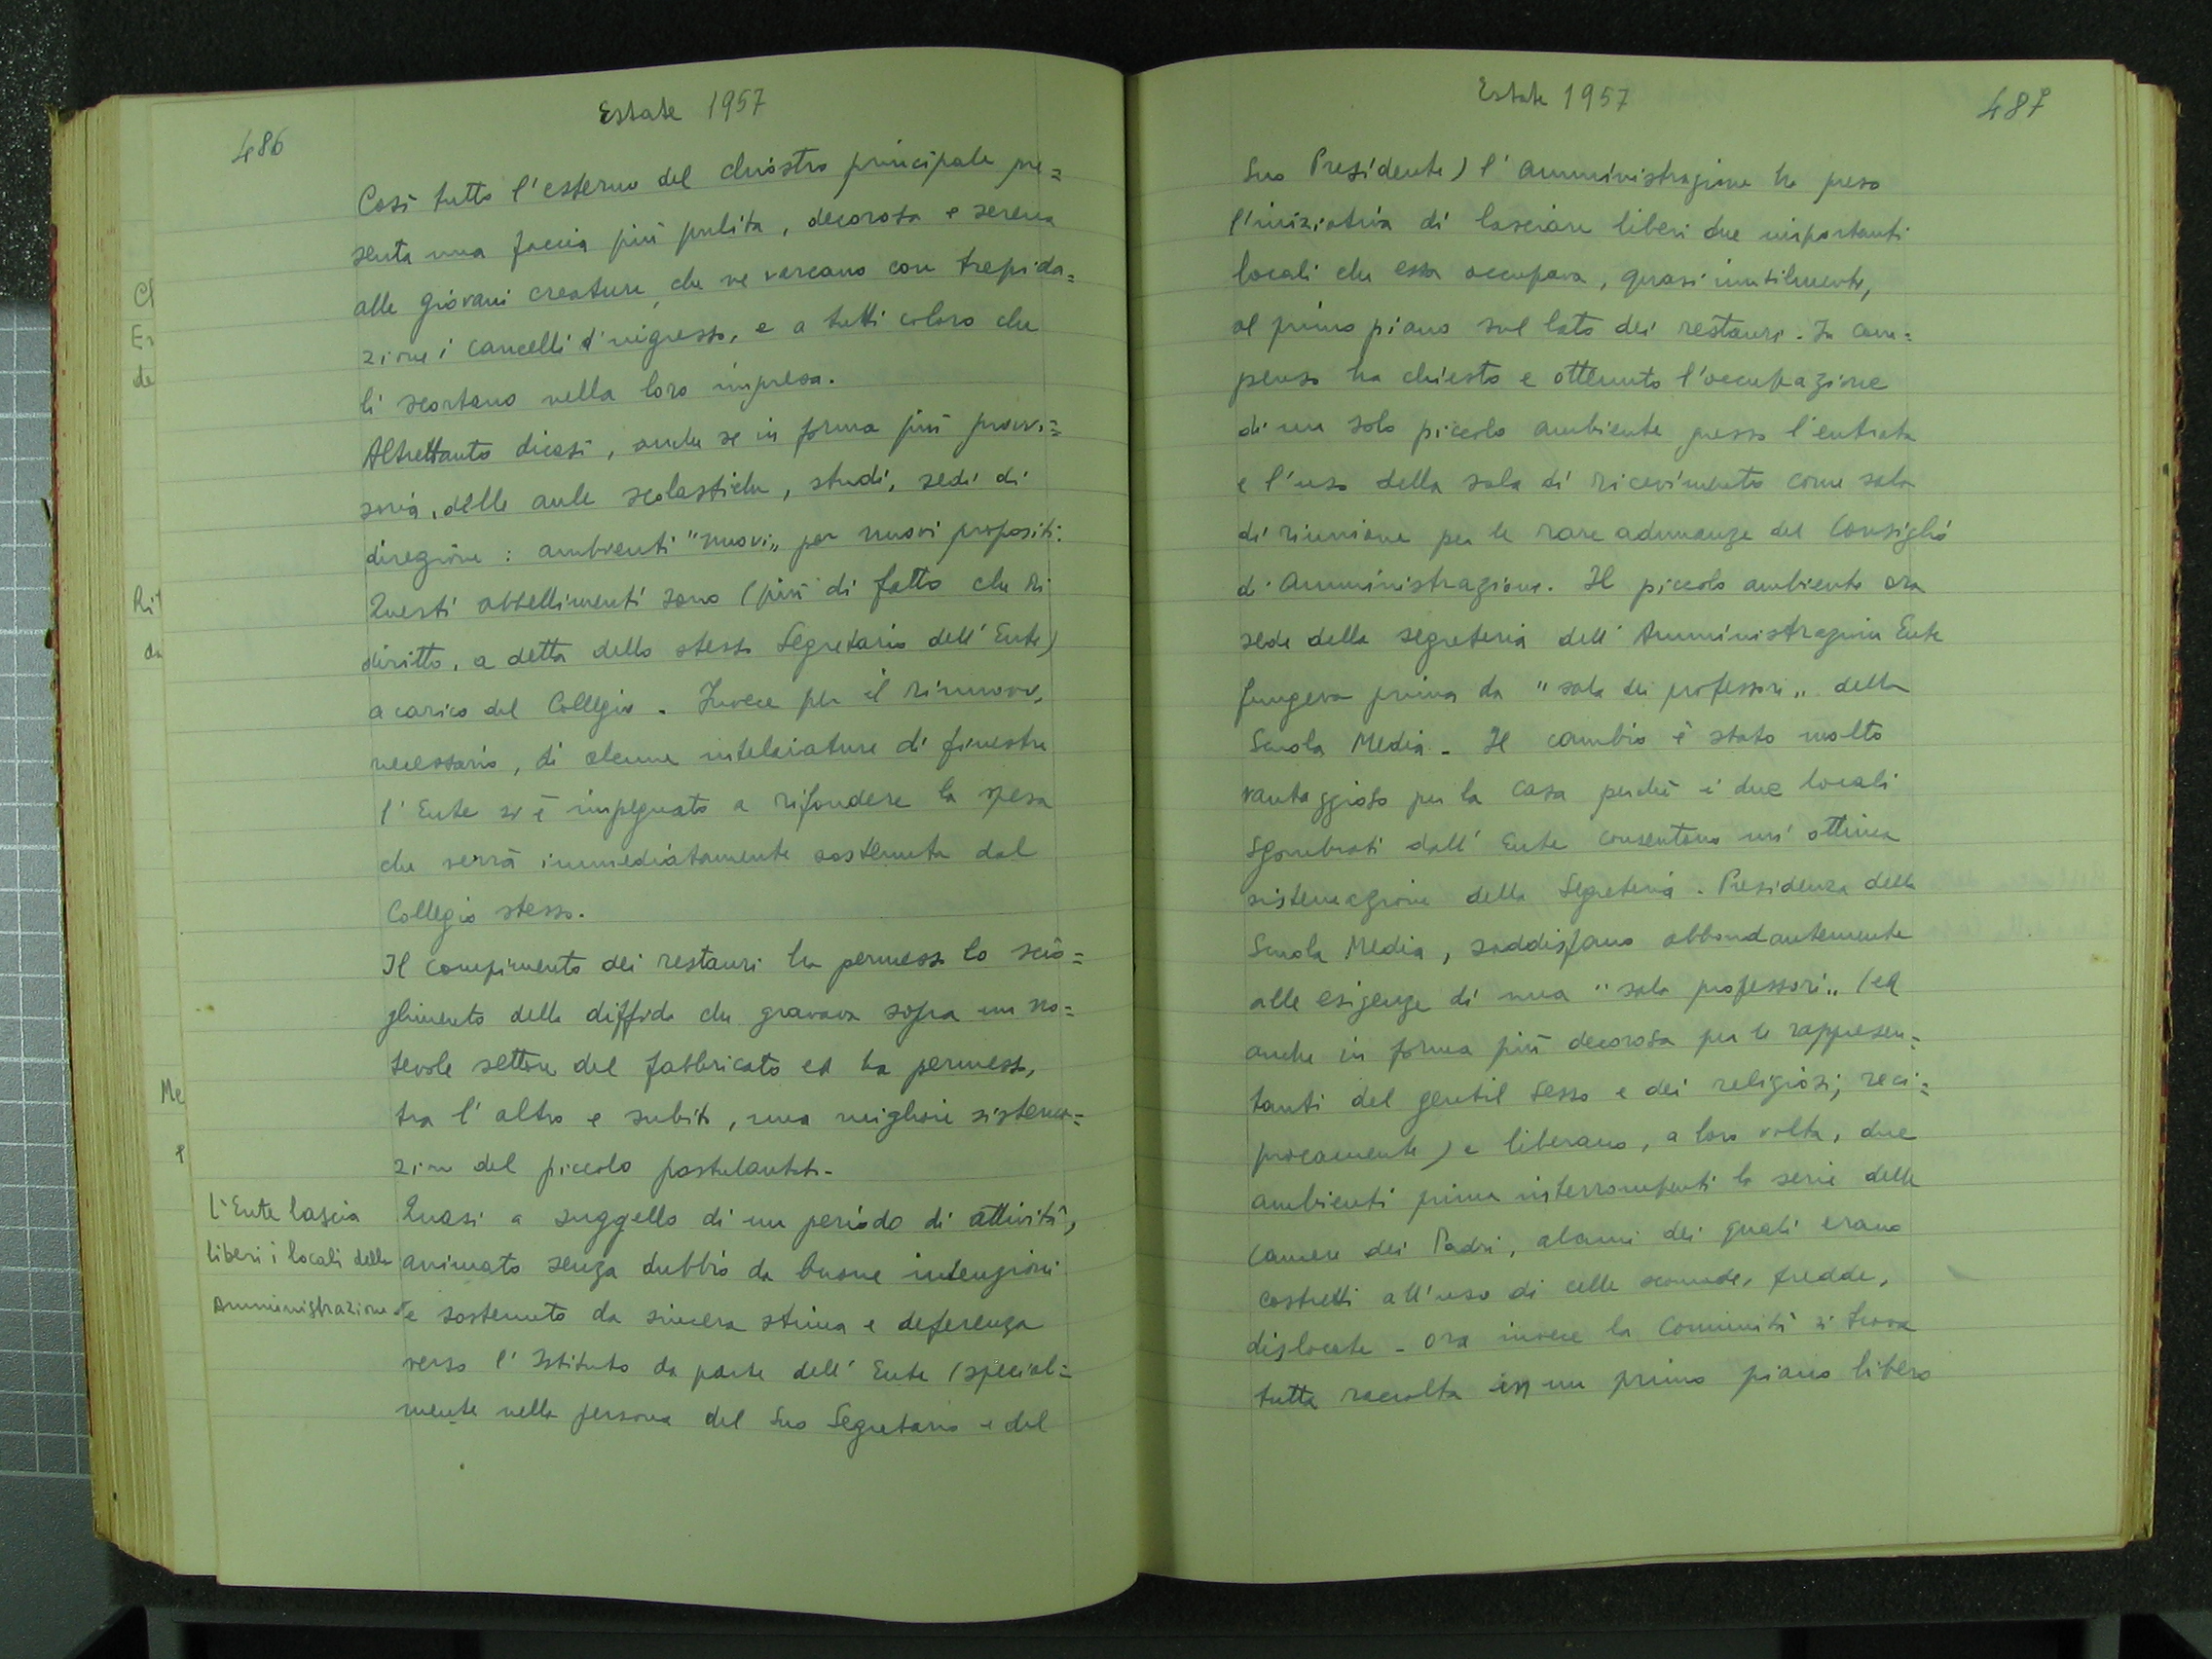 486
Estate 1957
Così tutto l'esterno del chiostro principale pre=
senta una faccia più pulita, decorosa e serena
alle giovani creature, che ne varcano con trepida=
zione i cancelli d'ingresso, e a tutti coloro che
li scortano nella loro impresa.
Altrettanto dicasi, anche se in forma più provvi=
soria, delle aule scolastiche, studi, sedi di
direzione: ambienti "nuovi" per nuovi propositi.
Questi abbellimenti sono (più di fatto che di
diritto, a detta dello stesso Segretario dell'Ente)
a carico del Collegio. Invece per il rinnovo,
necessario, di alcune intelaiature di finestre
l'Ente si è impegnato a rifondere la spesa
che verrà immediatamente sostenuta dal
Collegio stesso.
Il compimento dei restauri ha permesso lo scio=
glimento della diffida che gravava sopra un no=
tevole settore del fabbricato ed ha permesso,
tra l'altro e subito, una migliore sistema=
zione del piccolo postulantato.
L'Ente lascia
liberi i locali della
Amministrazione
Quasi a suggello di un periodo di attività,
animato senza dubbio da buone intenzioni
e sostenuto da sincera stima e deferenza
verso l'Istituto da parte dell'Ente (special=
mente nella persona del Suo Segretario e del
Cl
En
de
Rit
da
Me
Estate 1957
487
Suo Presidente) l'Amministrazione ha preso
l'iniziativa di lasciare liberi due importanti
locali che essa occupava, quasi inutilmente,
al primo piano sul lato dei restauri. In com=
penso ha chiesto e ottenuto l'occupazione
di un solo piccolo ambiente presso l'entrata
e l'uso della sala di ricevimento come sala
di riunione per le rare adunanze del Consiglio
di Amministrazione. Il piccolo ambiente ora
sede della segreteria dell'Amministrazion Ente
fungeva prima da "sala dei professori" della
Scuola Media. Il cambio è stato molto
vantaggioso per la Casa perchè i due locali
sgombrati dall'Ente consentono un'ottima
sistemazione della Segreteria. Presidenza della
Scuola Media, soddisfano abbondantemente
alle esigenze di una "sala professori" (ed
anche in forma più decorosa per le rappresen=
tanti del gentil sesso e dei religiosi, reci=
procamente) e liberano, a loro volta, due
ambienti prima interrompenti la serie delle
camere dei Padri, alcuni dei quali erano
costretti all'uso di celle scomode, fredde,
dislocate. Ora invece la Comunità si trova
tutta raccolta in un primo piano libero